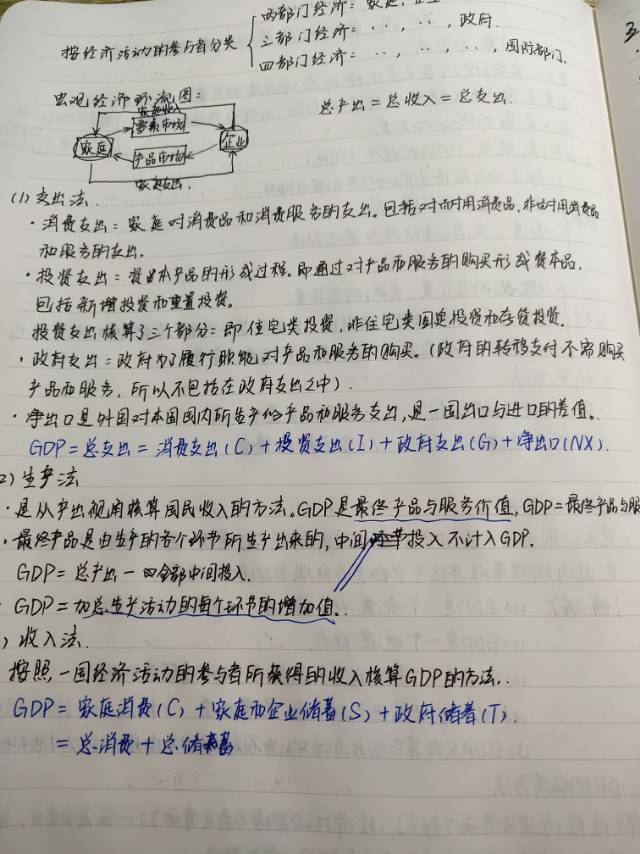 按经济活动的参与者分类
两部门经济:家庭,企业
三部门经济:〃,〃,政府.
四部门经济:〃,〃,〃,国际部门.
宏观经济环流图:
总产出=总收入=总支出.
家庭收入
要素市场
家庭
企业
产品市场
家庭支出
(1)支出法.
·消费支出:家庭对消费品和消费服务的支出。包括对耐用消费品,非耐用消费品
和服务的支出.
·投资支出:资本产品的形成过程。即通过对产品和服务的购买形成资本品,
包括新增投资和重置投资。
投资支出核算了三个部分:即住宅类投资,非住宅类固定投资和存货投资.
·政府支出:政府为了履行职能对产品和服务的购买。(政府的转移支付不需购买
产品和服务,所以不包括在政府支出之中).
·净出口是外国对本国国内所生产的产品和服务支出,是一国出口与进口的差值。
GDP=总支出=消费支出(C)+投资支出(I)+政府支出(G)+净出口(NX).
2)生产法
·是从产出视角核算国民收入的方法。GDP是最终产品与服务价值,GDP=最终产品与服
·最终产品是由生产的各个环节所生产出来的,中间投入不计入GDP.
GDP=总产出-全部中间投入.
·GDP=加总生产活动的每个环节的增加值.
)收入法.
按照,一国经济活动的参与者所获得的收入核算GDP的方法.
GDP=家庭消费(C)+家庭和企业储蓄(S)+政府储蓄(T).
=总消费+总储蓄